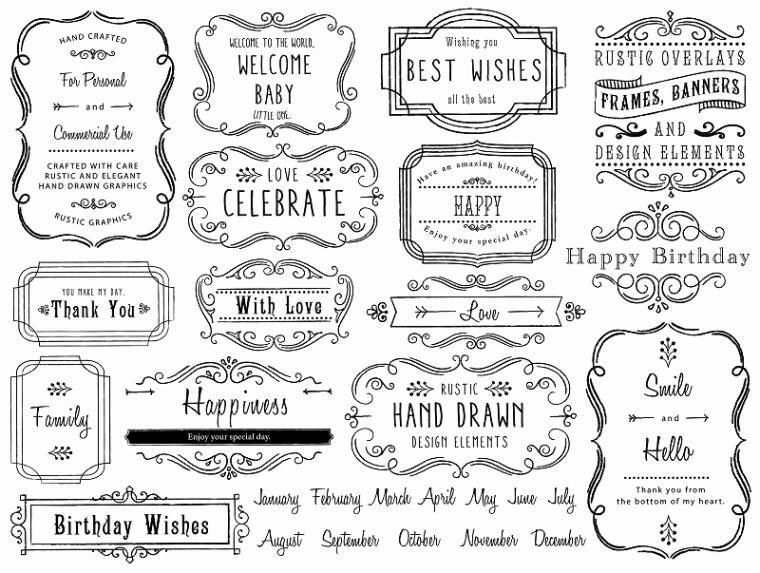 HAND CRAFTED
For Personal
and
Commercial Use
CRAFTED WITH CARE
RUSTIC AND ELEGANT
HAND DRAWN GRAPHICS
RUSTIC GRAPHICS
WELCOME TO THE WORLD,
WELCOME
BABY
LITTLE ONE.
Wishing you
BEST WISHES
all the best
RUSTIC OVERLAYS
FRAMES, BANNERS
AND
DESIGN ELEMENTS
LOVE
CELEBRATE
Have an amazing birthday!
HAPPY
Enjoy your special day.
Happy Birthday
YOU MAKE MY DAY,
Thank You
With Love
Love
Family
Happiness
Enjoy your special day.
RUSTIC
HAND DRAWN
DESIGN ELEMENTS
Smile
and
Hello
Thank you from
the bottom of my heart.
Birthday Wishes
January February March April May June July
August September October November December